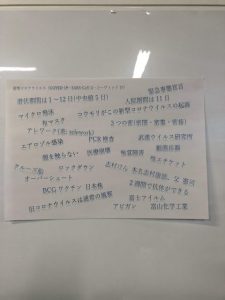 新型コロナウイルス (COVID-19・SARS-CoV-2・コービッド19)
緊急事態宣言
潜伏期間は1～12日(中央値5日) 入院期間は11日
マイクロ飛沫 コウモリがこの新型コロナウイルスの起源
布マスク 3つの密(密閉・密集・密接)
テレワーク(英: telework)
エアロゾル感染 PCR検査 武漢ウイルス研究所
顔を触らない 医療崩壊 嗅覚障害 咳エチケット
クルーズ船 ロックダウン 志村けん 本名志村康徳、父 憲司
オーバーシュート 2週間で抗体ができる
BCGワクチン 日本株 富士フイルム
旧コロナウイルスは通常の風邪 アビガン 富山化学工業